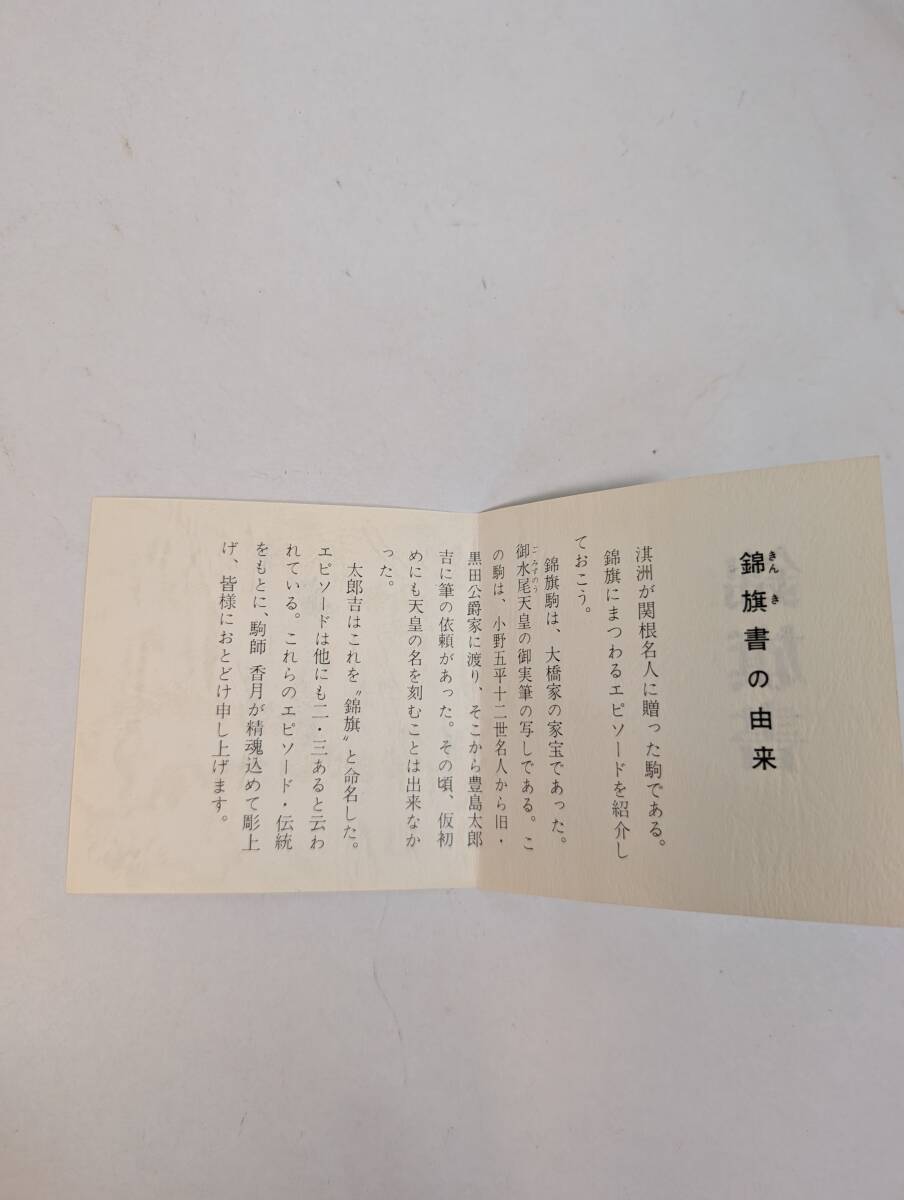 錦旗書の由来
きん き
淇洲が関根名人に贈った駒である。
錦旗にまつわるエピソードを紹介し
ておこう。
錦旗駒は、大橋家の家宝であった。
御水尾天皇の御実筆の写しである。こ
ご みずのう
の駒は、小野五平十二世名人から旧・
黒田公爵家に渡り、そこから豊島太郎
吉に筆の依頼があった。その頃、仮初
めにも天皇の名を刻むことは出来なか
った。
太郎吉はこれを〝錦旗〟と命名した。
エピソードは他にも二・三あると云わ
れている。これらのエピソード・伝統
をもとに、駒師 香月が精魂込めて彫上
げ、皆様におとどけ申し上げます。